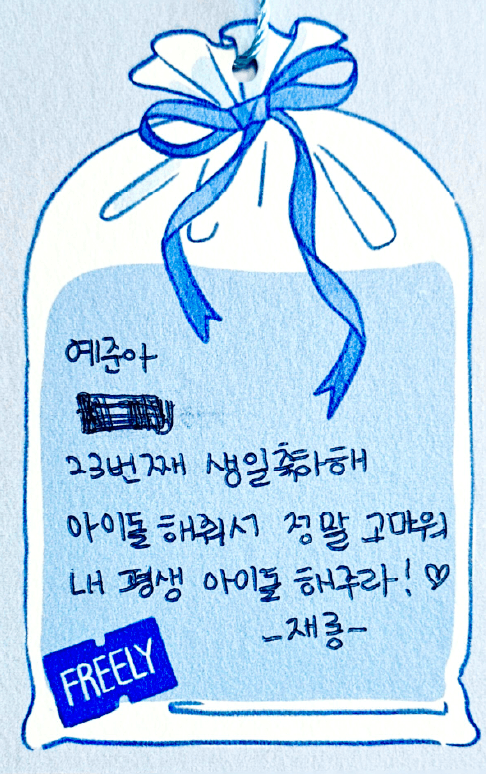 예준아
23번째 생일축하해
아이돌 해줘서 정말 고마워
내 평생 아이돌 해주라! ♡
-재롱-
FREELY